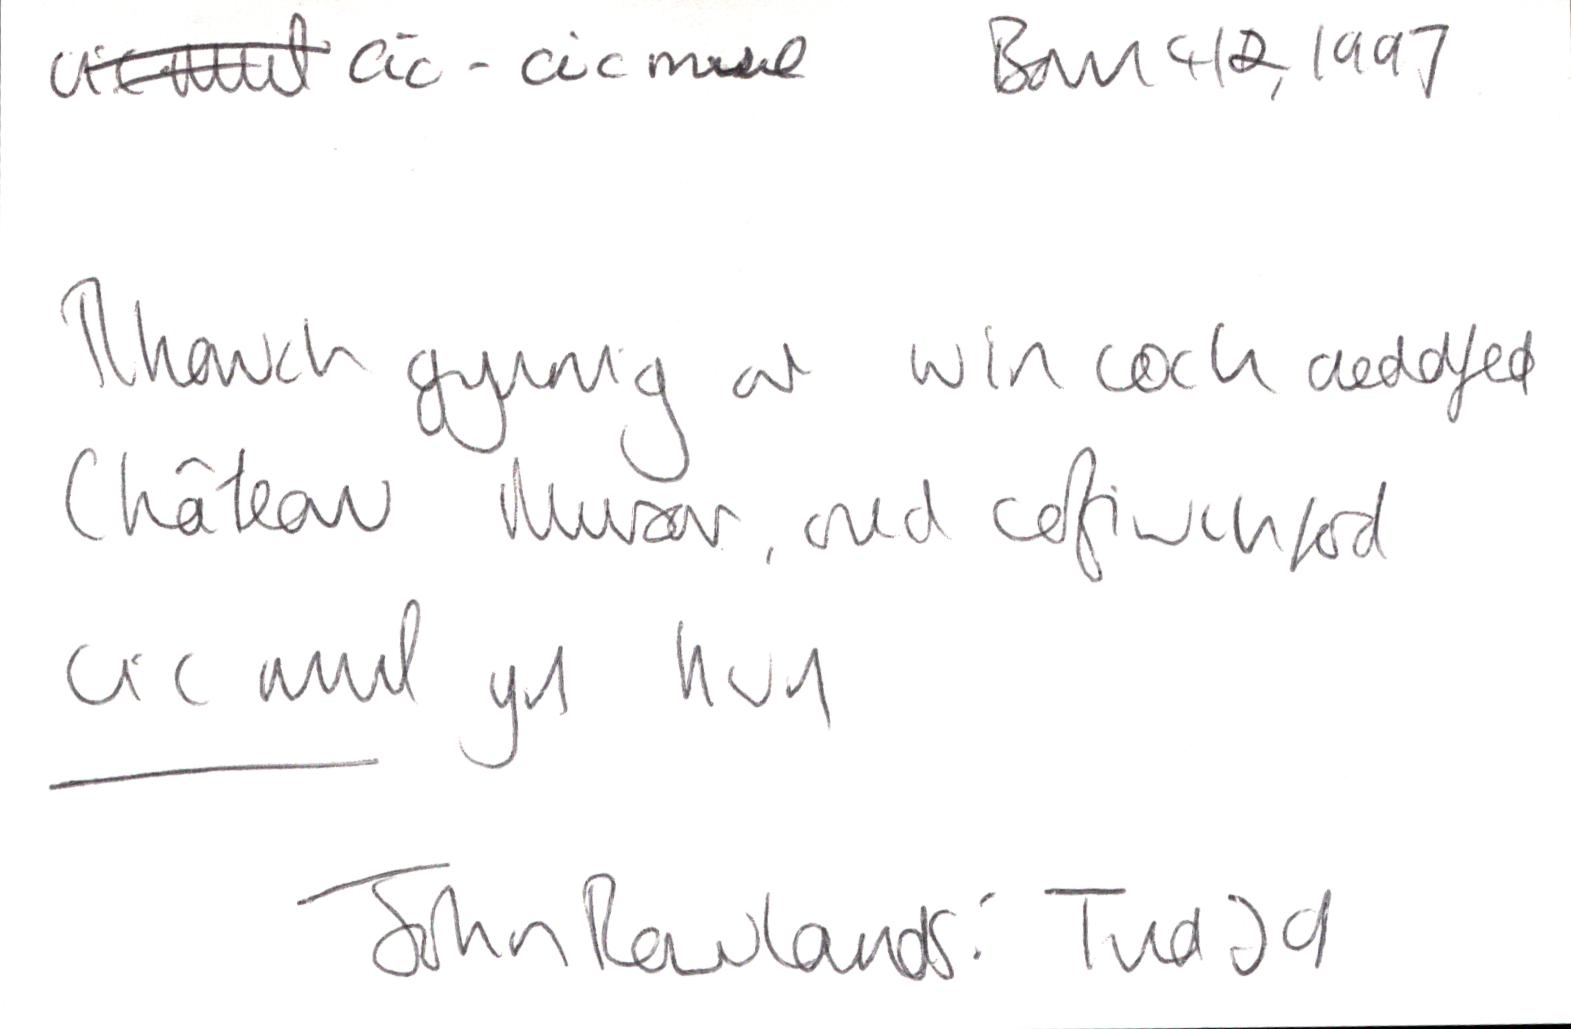 cic mul cic - cic mul Barn 412, 1997
Rhowch gynnig ar win coch aeddfed
Château Musar, ond cofiwch fod
cic mul yn hwn
John Rowlands: Tud